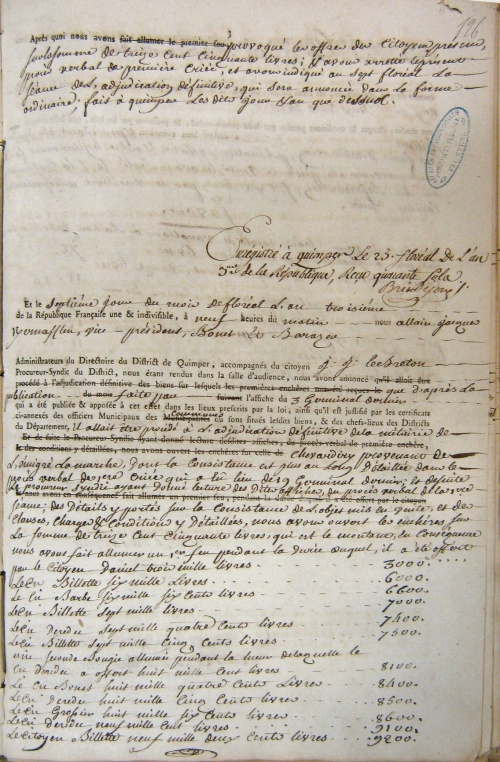 3
196
Après quoi nous avons fait allumer le premier feu provoqué les offres des Citoyens présens,
sur la somme de treize cent Cinquante livres; & avons arretté le présent
procès verbal de première Criée, et avons indiqué au sept floréal La
séance de L'adjudication définitive, qui sera annoncée dans la forme
ordinaire; fait à quimper Les dits jour & an que dessus.
Enrégistré à quimper Le 23. floréal de L'an
3me de la République, Reçu quarante sols
Et le Septième jour du mois de floréal L'an troisième
de la République Française une & indivisible, à neuf heures du matin nous allain jacque
Kermasson, vice-président, Bonet Le Barazer
Administrateurs du Directoire du District de Quimper, accompagnés du citoyen j. j. leBreton
Procureur-Syndic du District, nous étant rendus dans la salle d'audience, nous avons annoncé qu'il alloit être
procédé à l'adjudication définitive des biens sur lesquels les premières enchères avoient été reçues le que d'après La
publication du mois faite par suivant l'affiche du 3 Germinal dernier
qui a été publiée & apposée à cet effet dans les lieux prescrits par la loi, ainsi qu'il est justifié par les certificats
d'avancés des officiers Municipaux des Municipalités Communes où sont situés lesdits biens, & des chefs-lieux des Districts
du Département, il allait être procédé à L'adjudication définitive de la métairie de
Et de suite le Procureur-Syndic ayant donné lecture desdites affiches, du procès-verbal de première enchère,
& des conditions y détaillées, nous avons ouvert les enchères sur celle de Chevardiry provenant de
L'émigré La marche, Dont la Consistance est plus au Long Détaillée dans le
procès verbal de 1ere Criée qui a eu lieu le 19 Germinal dernier; et de suite
Le procureur syndic ayant Donné lecture des Dites affiches, du procès verbal de la 1ere
Nous avons en conséquence fait allumer un premier feu, pendant la durée duquel il a été offert par le citoyen
séance: des Détails y portés sur la Consistance de L'objet mis en vente, et des
Clauses, Charges & conditions y Détaillées, nous avons ouvert les enchères sur
La somme de treize Cent Cinquante livres, qui est le montant; en Conséquence
nous avons fait allumer un 1er feu pendant la durée duquel, il a été offert
par le Citoyen Daniel trois mille livres 3000.
Le Cn Billette six mille Livres 6000.
Le Cn Barbe six mille six Cents livres 6600.
Le Cn Billette sept mille livres 7000.
Le Cn Deredec sept mille quatre Cents livres 7400.
Le Cn Billette Sept mille Cinq Cents livres 7500.
une seconde Bougie allumée pendant la lueur de laquelle le
Cn Deredec a offert huit mille cent livres 8100.
Le Cn Bonet huit mille quatre Cents Livres 8400.
Le Cn Deredec huit mille Cinq Cents livres 8500.
Le Cn Grossier huit mille six Cents livres 8600.
Le Cn Deredec neuf mille Cent livres 9100.
Le Citoyen Billette neuf mille deux Cents livres 9200.